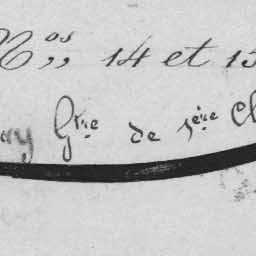 Nos 14 et 15
Gtre de 1ère Cl